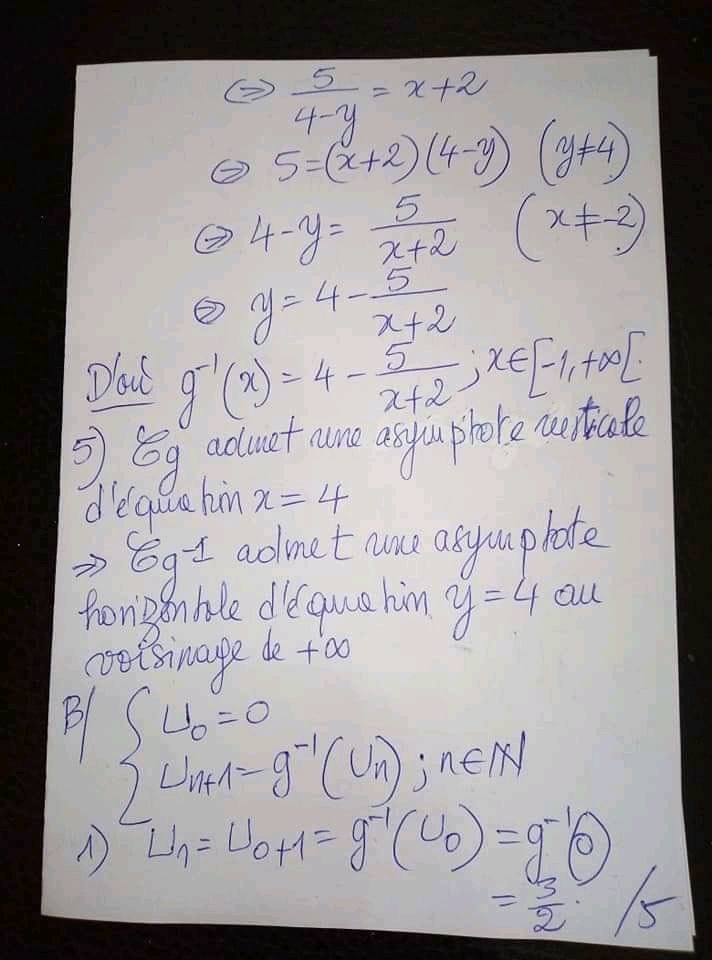 ⇔ 5/(4-y) = x+2
⇔ 5=(x+2)(4-y) (y≠4)
⇔ 4-y= 5/(x+2) (x≠-2)
⇔ y= 4 - 5/(x+2)
D'où g⁻¹(x) = 4 - 5/(x+2) ; x∈[-1,+∞[
5) 𝒞g admet une asymptote verticale
d'équation x=4
⇒ 𝒞g-1 admet une asymptote
horizontale d'équation y=4 au
voisinage de +∞
B/ { U₀=0
Un+1=g⁻¹(Un) ; n∈ℕ
1) U₁= U₀₊₁ = g⁻¹(U₀) = g⁻¹(0)
= 3/2. /5